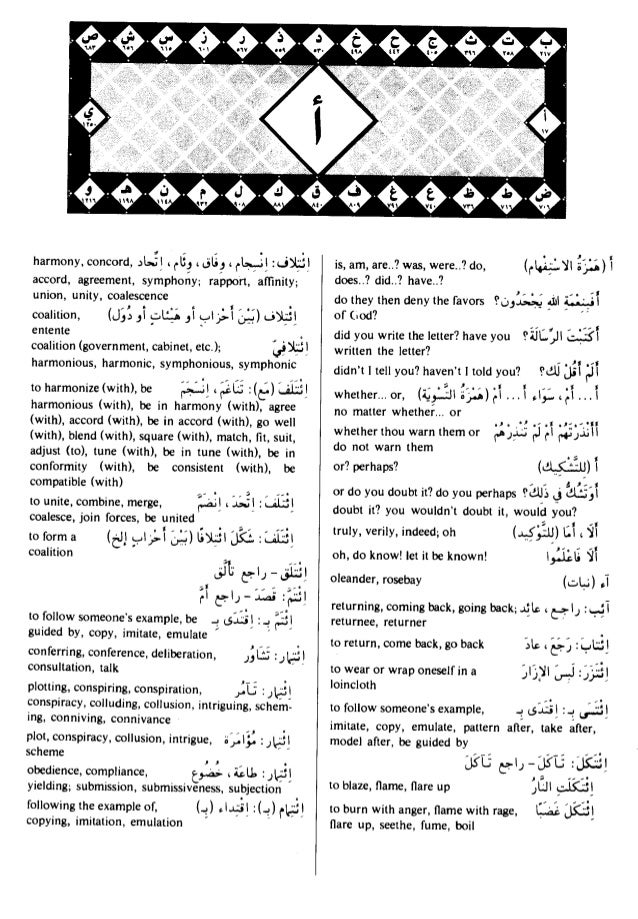 ب ت ث ج ح خ د ذ ر ز س ش ص
٢١٧ ٢٥٨ ٣٩٦ ٤٠٥ ٤٤٢ ٤٩٨ ٥٣٠ ٥٥٩ ٥٦٧ ٦٠١ ٦١٥ ٦٥٦ ٦٨٣
أ أ ي
١٧ ١٢٥٠
ض ط ظ ع غ ف ق ك ل م ن هـ و
٧٠٦ ٧١٦ ٧٣٦ ٧٤٠ ٧٩٠ ٨٠٩ ٨٨١ ٩٠٨ ٩٣٢ ١١٤٨ ١١٩٨ ١٢١٦
أ (هَمْزَةُ الاسْتِفْهام) is, am, are..? was, were..? do,
does..? did..? have..?
أَفَبِنِعْمَةِ اللهِ يَجْحَدُون؟ do they then deny the favors
of God?
أَكَتَبْتَ الرِّسَالَةَ؟ did you write the letter? have you
written the letter?
أَلَمْ أَقُلْ لَكَ؟ didn't I tell you? haven't I told you?
أ... أَمْ، سَوَاء أ... أَمْ (هَمْزَةُ التَّسْوِيَة) whether... or,
no matter whether... or
أَأَنْذَرْتَهُمْ أَمْ لَمْ تُنْذِرْهُمْ whether thou warn them or
do not warn them
أ (لِلتَّشْكِيك) or? perhaps?
أَوَتَشُكُّ فِي ذَلِكَ؟ or do you doubt it? do you perhaps
doubt it? you wouldn't doubt it, would you?
أَلَا، أَمَا (لِلتَّوْكِيد) truly, verily, indeed; oh
أَلَا فَاعْلَمُوا oh, do know! let it be known!
آء (نبات) oleander, rosebay
آئِب: راجِع، عائِد returning, coming back, going back;
returnee, returner
ائْتَابَ: رَجَعَ، عادَ to return, come back, go back
ائْتَزَرَ: لَبِسَ الإِزَارَ to wear or wrap oneself in a
loincloth
ائْتَسَى بِـ: اقْتَدَى بِـ to follow someone's example,
imitate, copy, emulate, pattern after, take after,
model after, be guided by
ائْتَكَلَ: تَآكَلَ - راجع تَآكَلَ
ائْتَكَلَتِ النَّارُ to blaze, flame, flare up
ائْتَكَلَ غَضَبًا to burn with anger, flame with rage,
flare up, seethe, fume, boil
ائْتِلاف: انْسِجام، وِفَاق، وِئَام، اتِّحاد harmony, concord,
accord, agreement, symphony; rapport, affinity;
union, unity, coalescence
ائْتِلاف (بَيْنَ أَحْزابٍ أو هَيْئَاتٍ أو دُوَل) coalition,
entente
ائْتِلافِيّ coalition (government, cabinet, etc.);
harmonious, harmonic, symphonious, symphonic
ائْتَلَفَ (مَع): تَنَاغَمَ، انْسَجَمَ to harmonize (with), be
harmonious (with), be in harmony (with), agree
(with), accord (with), be in accord (with), go well
(with), blend (with), square (with), match, fit, suit,
adjust (to), tune (with), be in tune (with), be in
conformity (with), be consistent (with), be
compatible (with)
ائْتَلَفَ: اتَّحَدَ، انْضَمَّ to unite, combine, merge,
coalesce, join forces, be united
ائْتَلَفَ: شَكَّلَ ائْتِلافًا (بَيْنَ أَحْزابٍ إلخ) to form a
coalition
ائْتَلَقَ - راجع تَأَلَّقَ
ائْتَمَّ: قَصَدَ - راجع أَمَّ
ائْتَمَّ بِـ: اقْتَدَى بِـ to follow someone's example, be
guided by, copy, imitate, emulate
ائْتِمار: تَشَاوُر conferring, conference, deliberation,
consultation, talk
ائْتِمار: تَآمُر plotting, conspiring, conspiration,
conspiracy, colluding, collusion, intriguing, schem-
ing, conniving, connivance
ائْتِمار: مُؤَامَرَة plot, conspiracy, collusion, intrigue,
scheme
ائْتِمار: طاعَة، خُضُوع obedience, compliance,
yielding; submission, submissiveness, subjection
ائْتِمام (بِـ): اقْتِداء (بِـ) following the example of,
copying, imitation, emulation